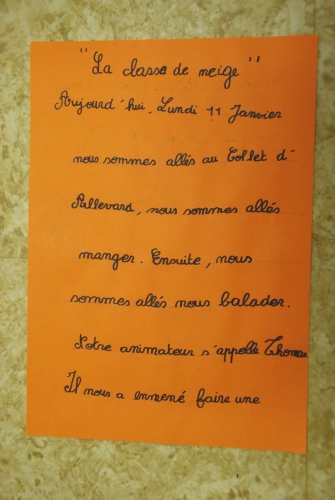 "La classe de neige"
Aujourd'hui, Lundi 11 Janvier
nous sommes allés au Collet d'
Allevard, nous sommes allés
manger. Ensuite, nous
sommes allés nous balader.
Notre animateur s'appelle Thomas
Il nous a emmené faire une